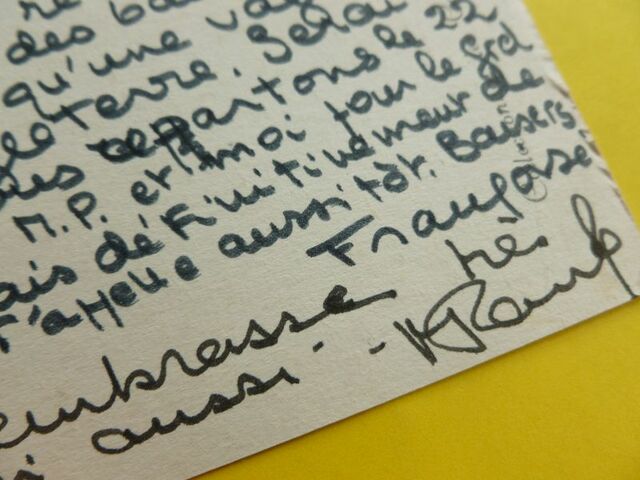 re
des ba
qu'une vag
leterre. Serai
partons le 22
M.P. et moi pour le Grd
ais définitivement de
aussitôt. Baisers
Françoise
embrasse très
i aussi. -